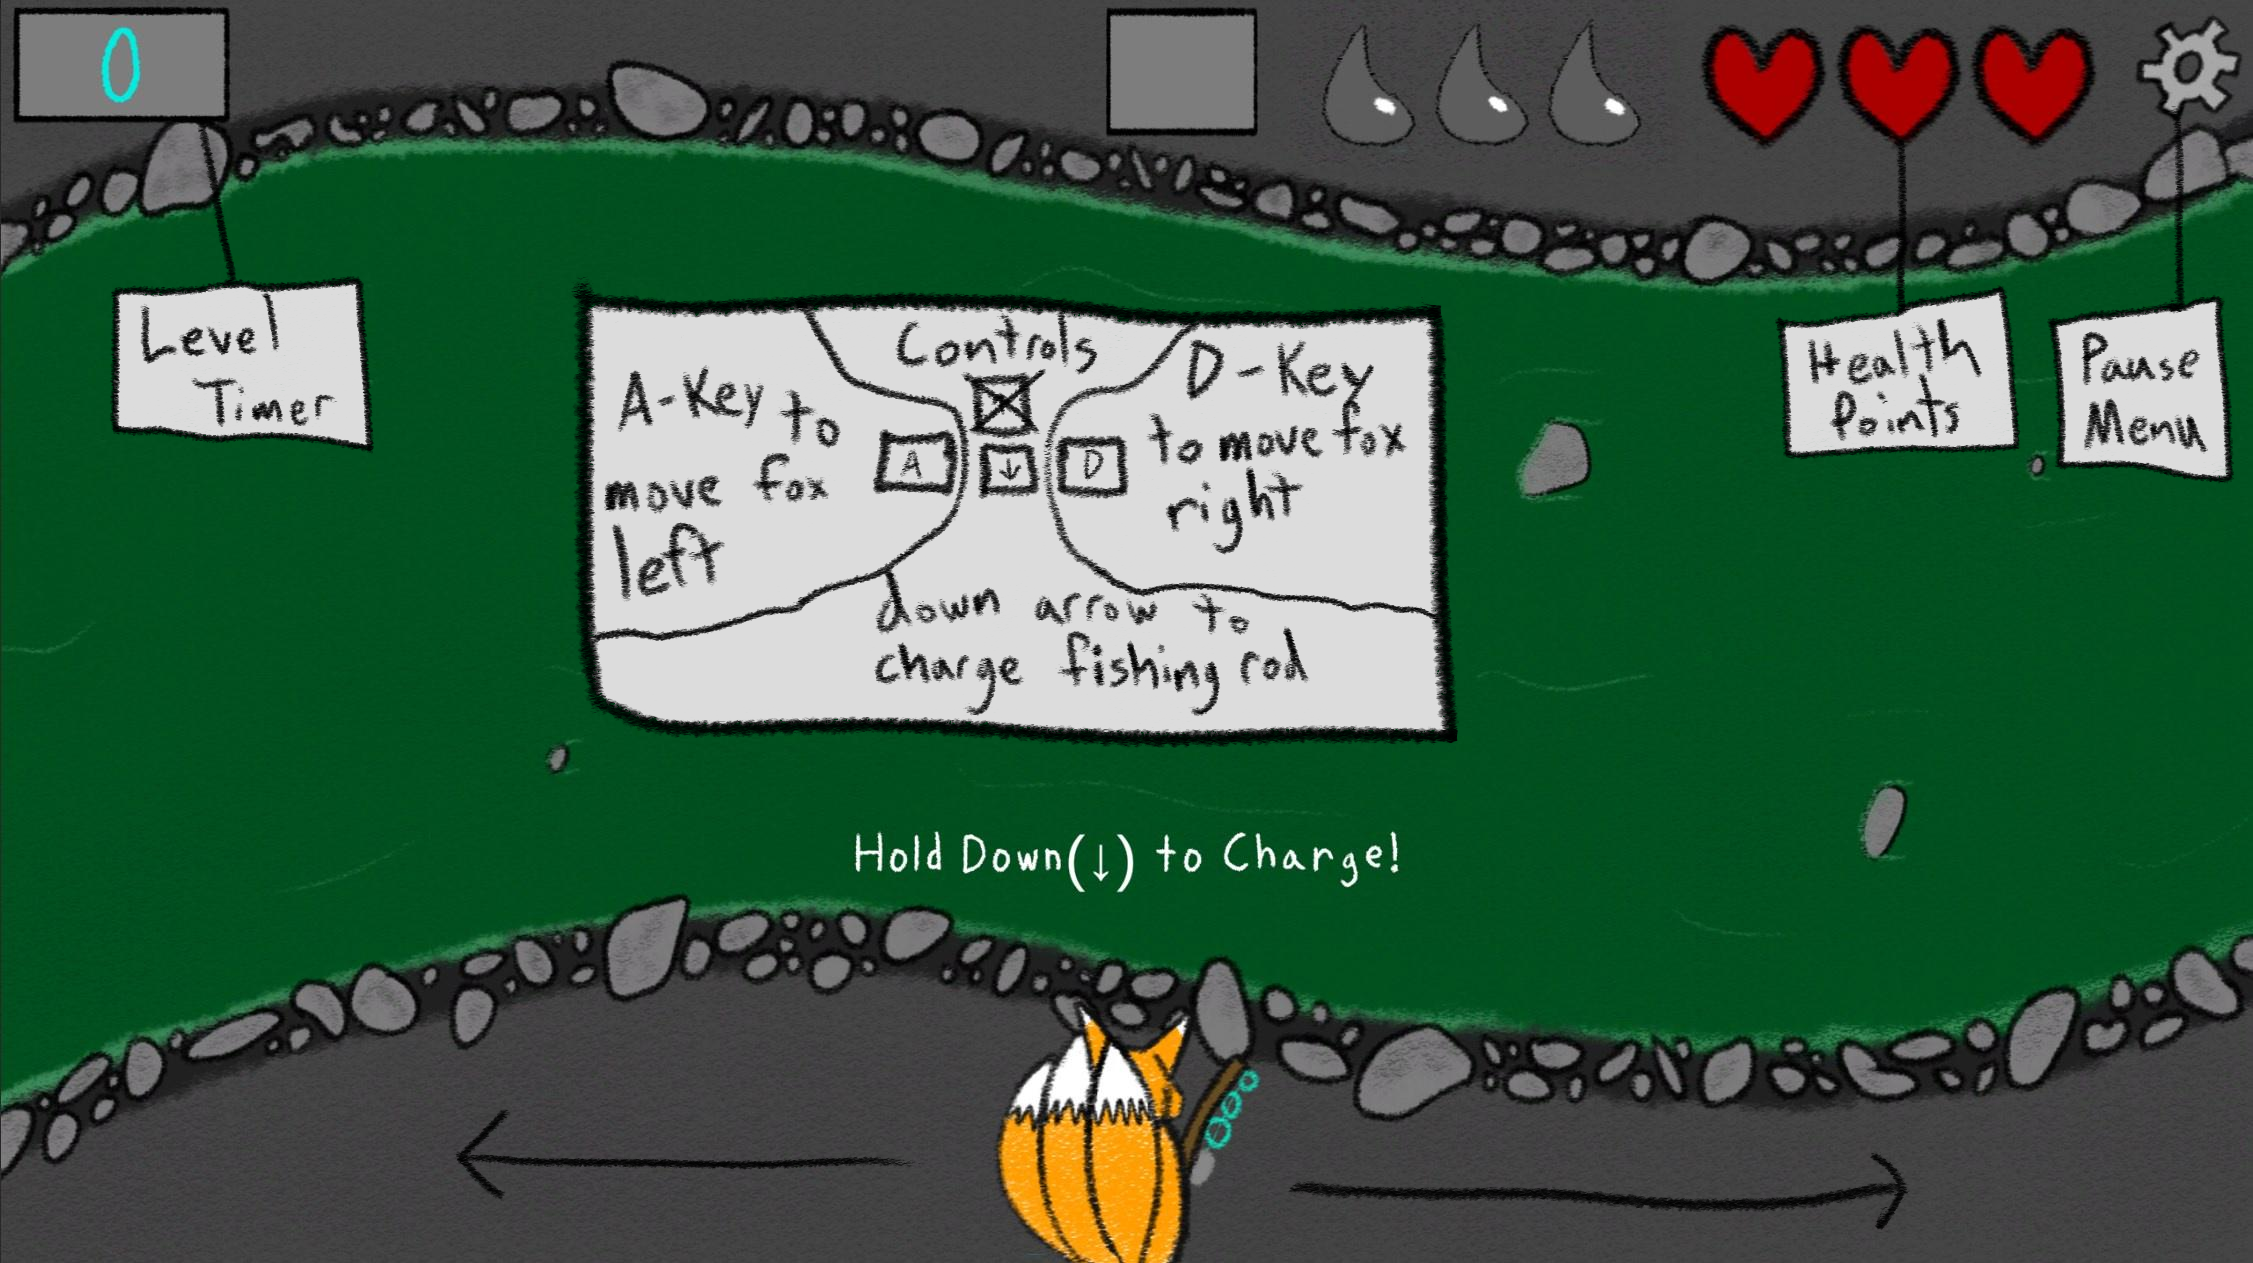 0
Level
Timer
Controls
A-Key to
move fox
left
A
↓
D
D-Key
to move fox
right
down arrow to
charge fishing rod
Health
Points
Pause
Menu
Hold Down(↓) to Charge!